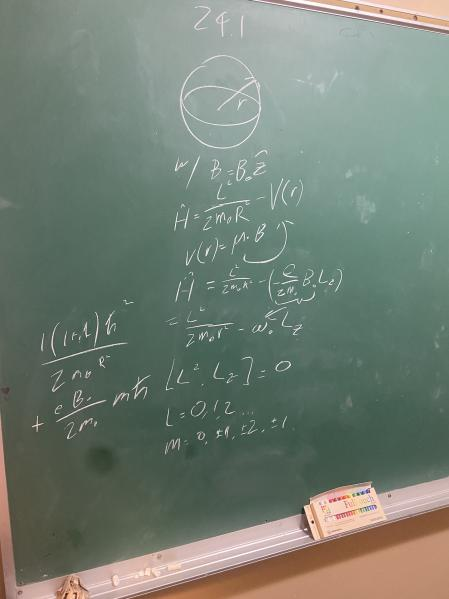 24.1
r
w/ B=B₀ẑ
Ĥ = L²/2m₀R² - V(r)
V(r) = μ·B
Ĥ = L²/2m₀R² - (e/2m₀ B₀Lz)
= L²/2m₀r² - ω₀Lz
[L², Lz] = 0
L = 0, 1, 2 ...
m = 0, ±1, ±2, ±1
l(l+1)ħ²/2m₀R²
+ eB₀/2m₀ mħ
Fulltouch